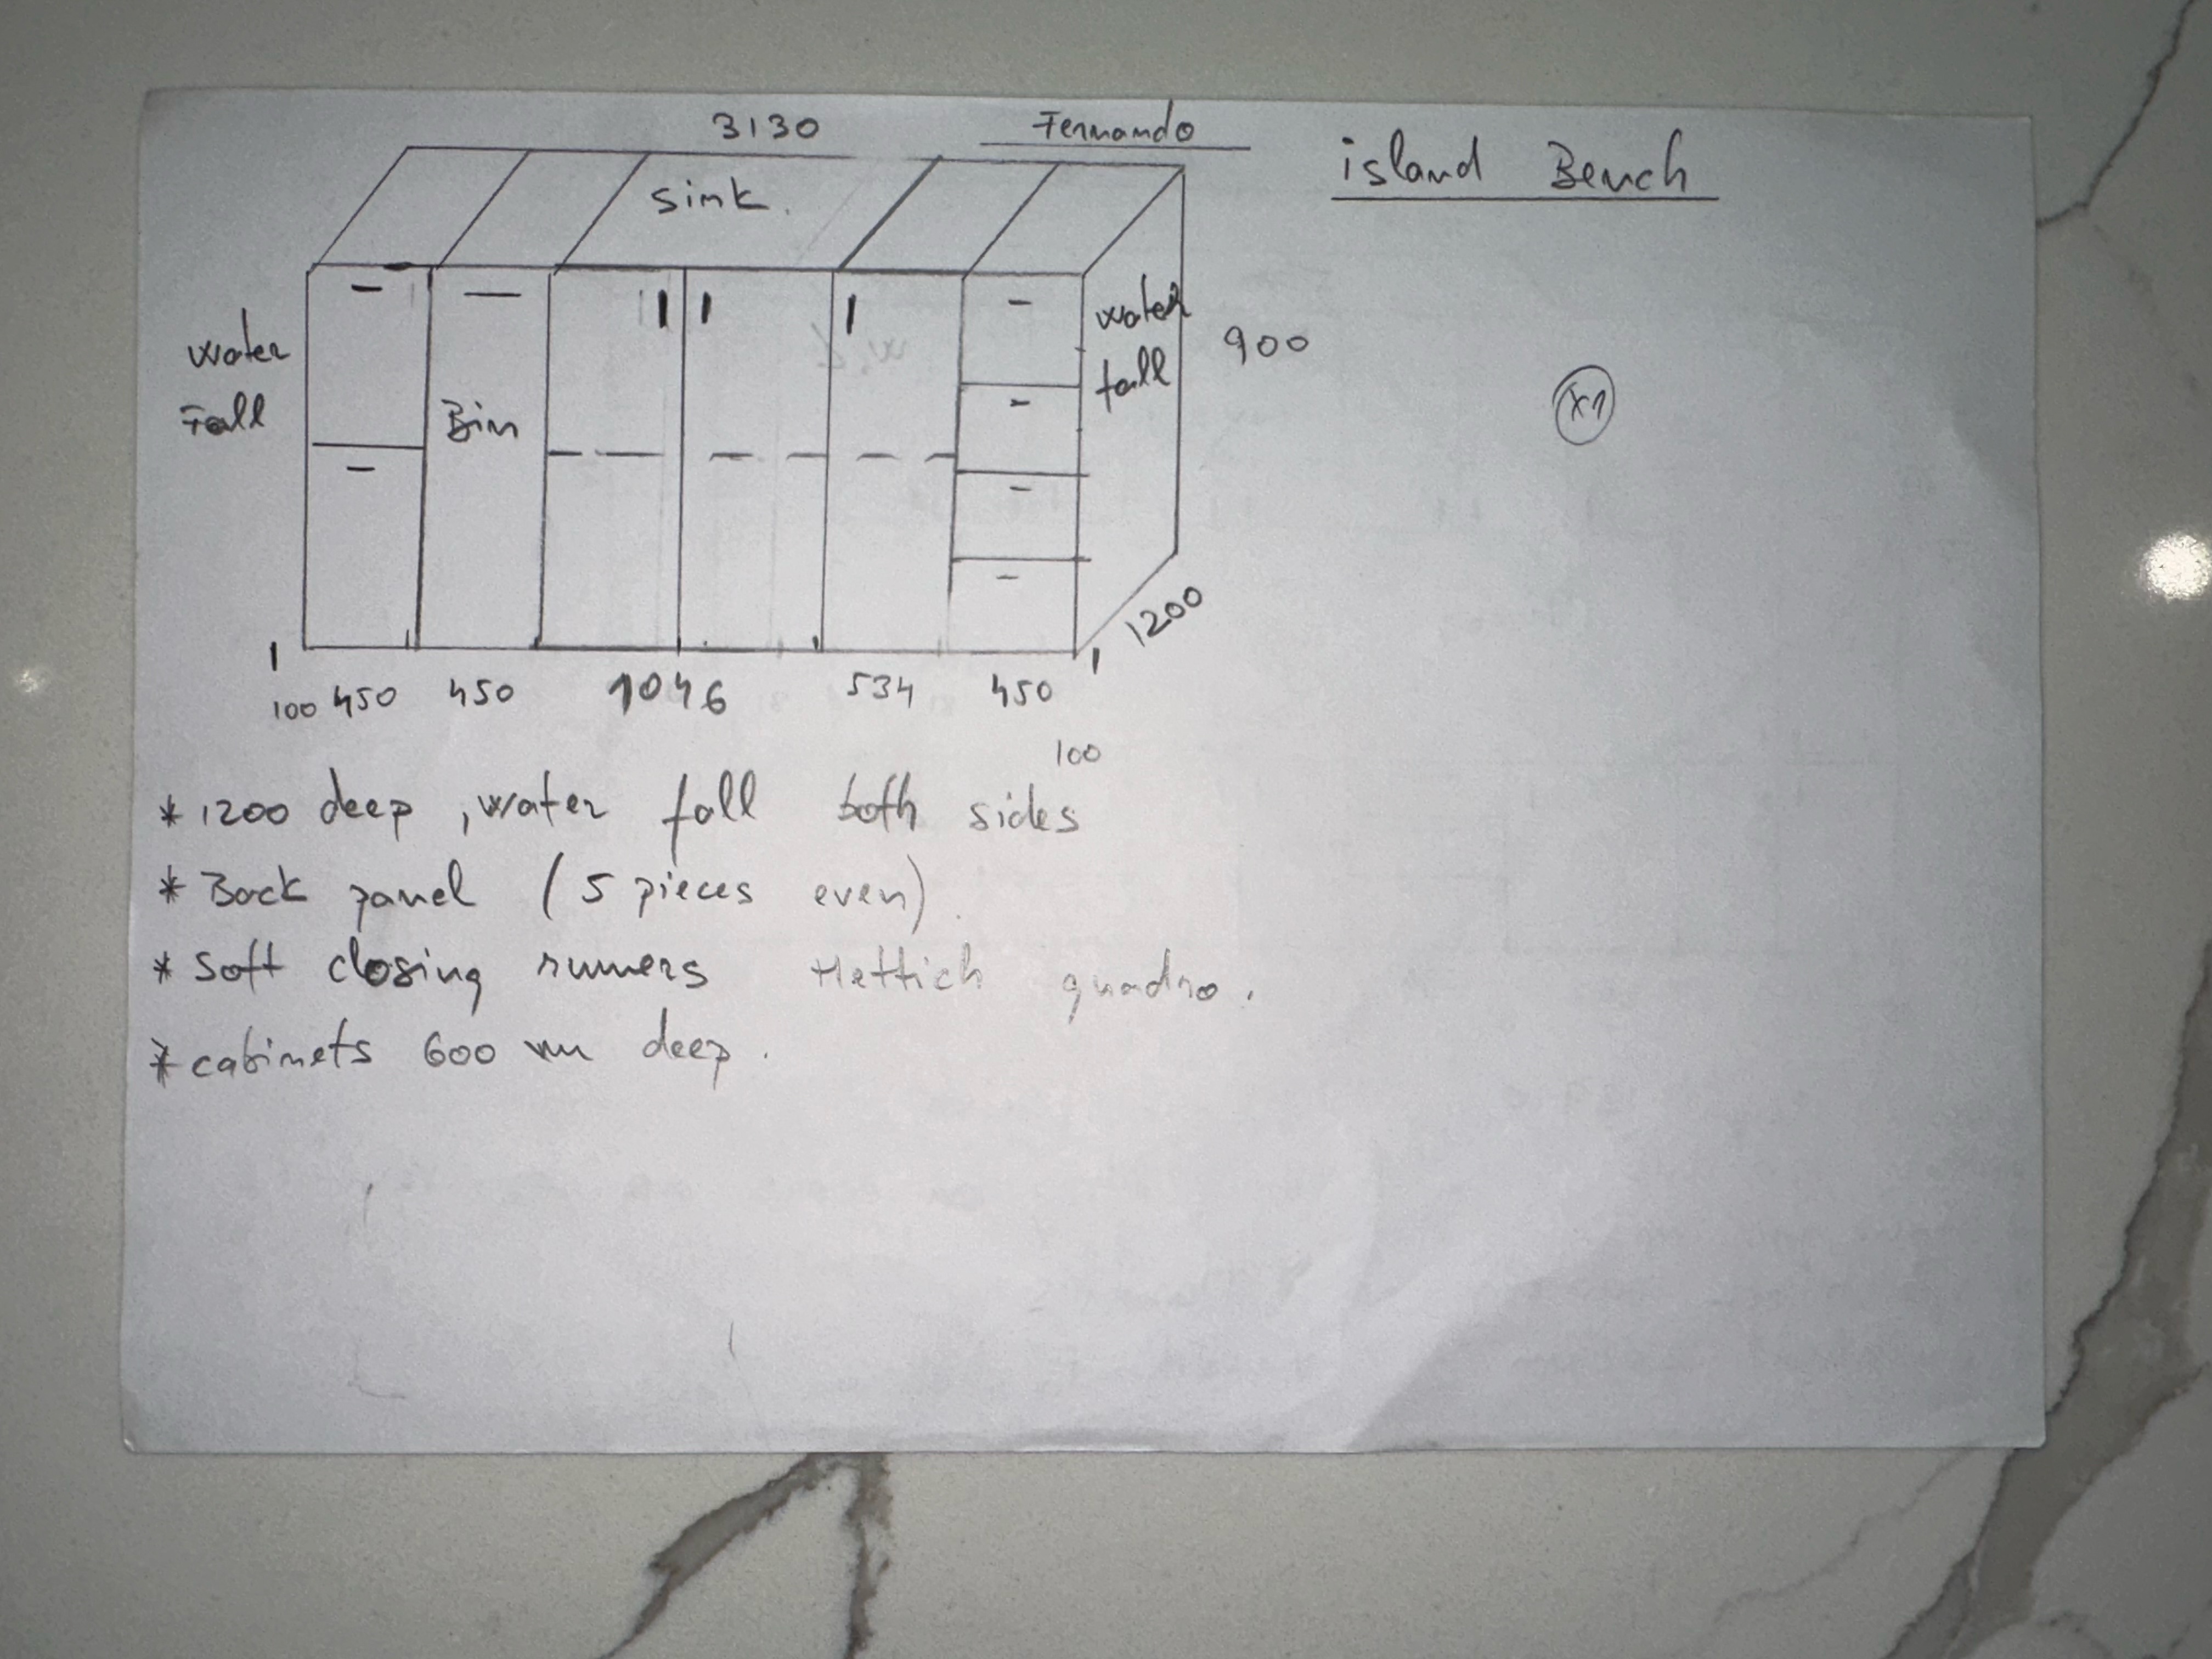 3130
Fernando
island Bench
sink.
water
Fall
Bin
water
fall
900
x1
1200
100 450 450 1046 534 450
100
* 1200 deep, water fall both sides
* Back panel (5 pieces even).
* Soft closing runners Hettich quadro.
* cabinets 600 mm deep.